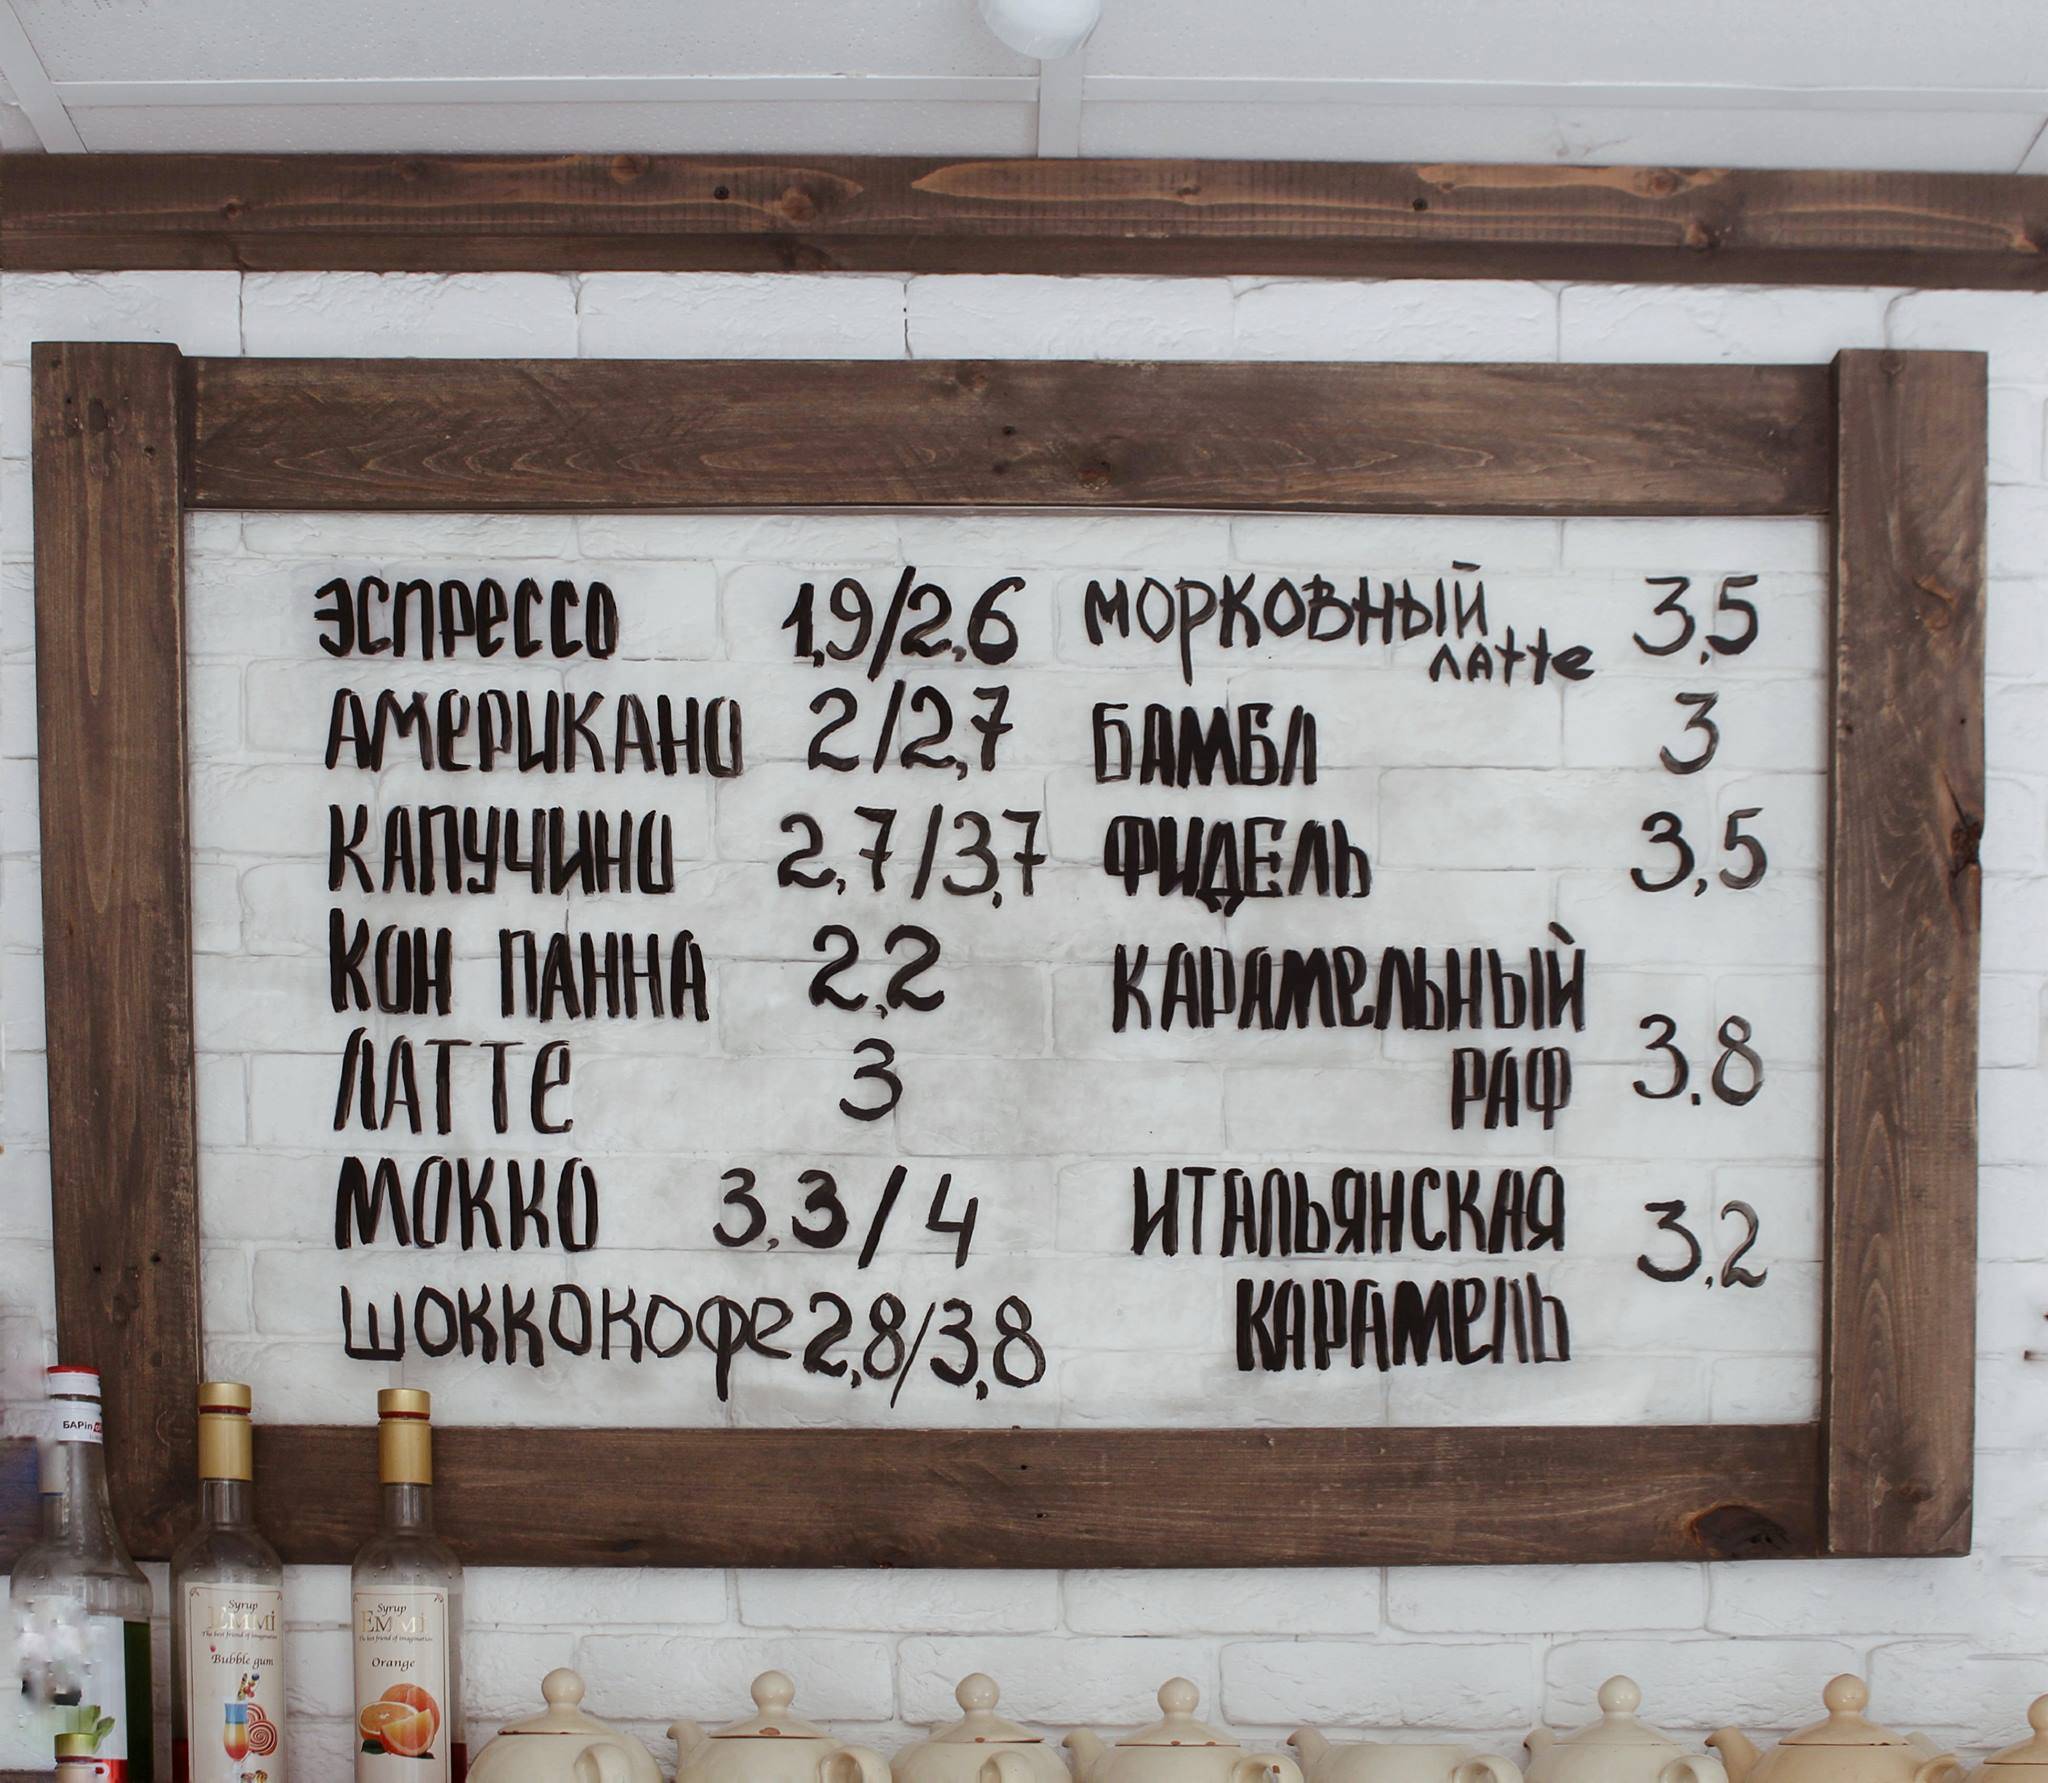 ЭСПРЕССО 1,9/2,6
АМЕРИКАНО 2/2,7
КАПУЧИНО 2,7/3,7
КОН ПАННА 2,2
ЛАТТЕ 3
МОККО 3,3/4
ШОККОКОФЕ 2,8/3,8
МОРКОВНЫЙ 3,5
ЛАТТЕ
БАМБЛ 3
ФИДЕЛЬ 3,5
КАРАМЕЛЬНЫЙ
РАФ 3.8
ИТАЛЬЯНСКАЯ 3,2
КАРАМЕЛЬ
Syrup
EMMi
The best friend of imagination
Bubble gum
Syrup
EMMi
The best friend of imagination
Orange